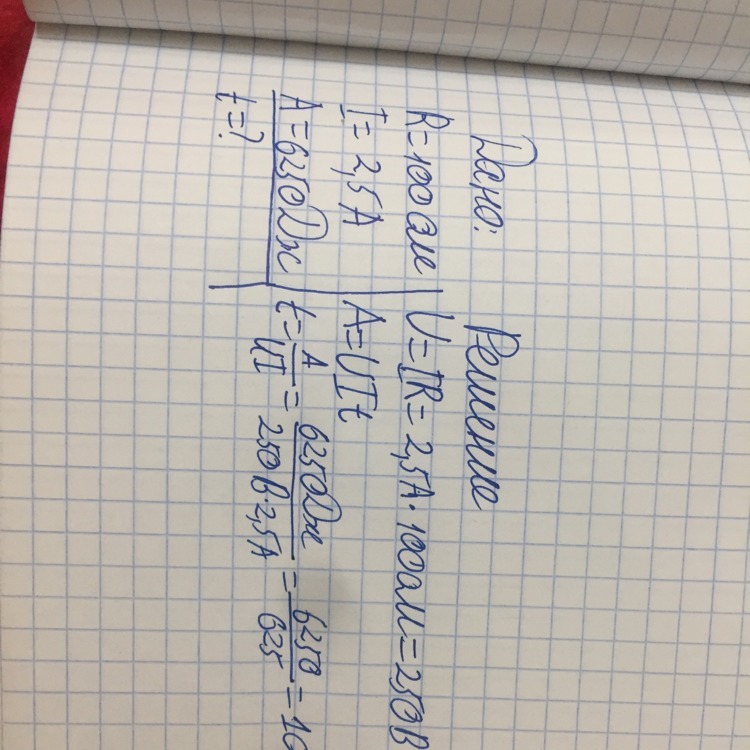 Дано:
R=100ом
I=2,5А
A=6250Дж
t=?
Решение
U=IR=2,5А·100ом=250В
A=UIt
t=A/UI=6250Дж/250В·2,5А=6250/625=10